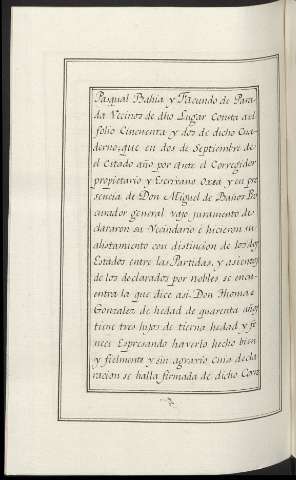 Pasqual Bahia y Facundo de Para
da Vecinos de dho Lugar Consta a el
folio Cincuenta y dos de dicho Cua
derno que en dos de Septiembre de
el Citado año por ante el Corregidor
propietario y Escrivano Oxsá y en pre
sencia de Don Miguel de Baños Pro
curador general vajo juramento de
clararon su Vecindario e hicieron su
alistamiento con distincion de los dos
Estados entre las Partidas, y asientos
de los declarados por nobles se encu
entra la que dice asi Don Thomas
Gonzalez de hedad de quarenta años
tiene tres hijos de tierna hedad y fe
nece Espresando haverlo hecho bien
y fielmente y sin agravio Cuia decla
racion se halla firmada de dicho Corre